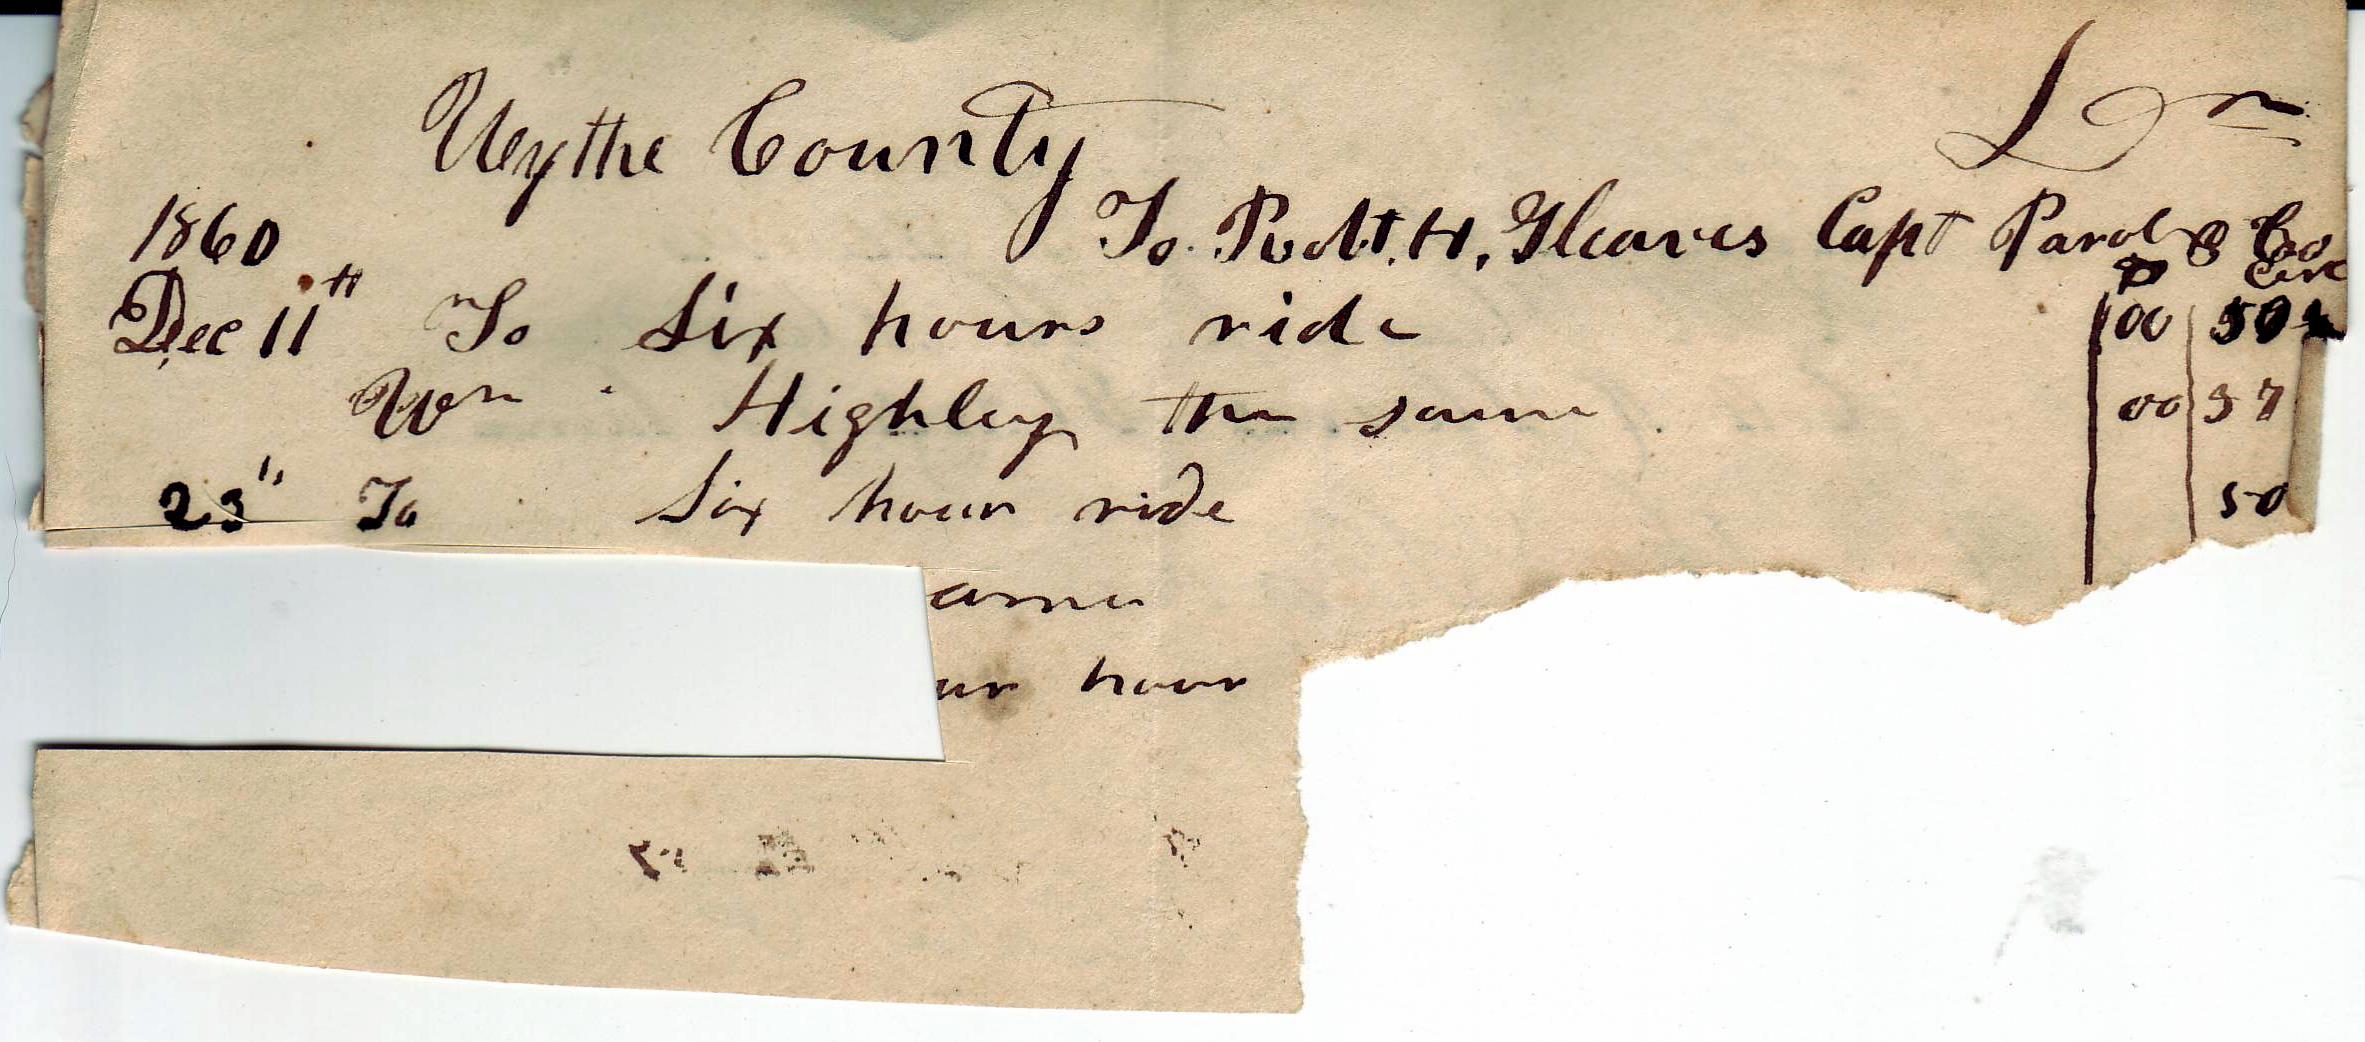 Wythe County Dr
1860 To Robt. H. Gleaves Capt Parol & Co
Dec 11th To Six hours ride 00 50
Wm Highley the same 00 37
23" To Six hour ride 50
ame
ur hour